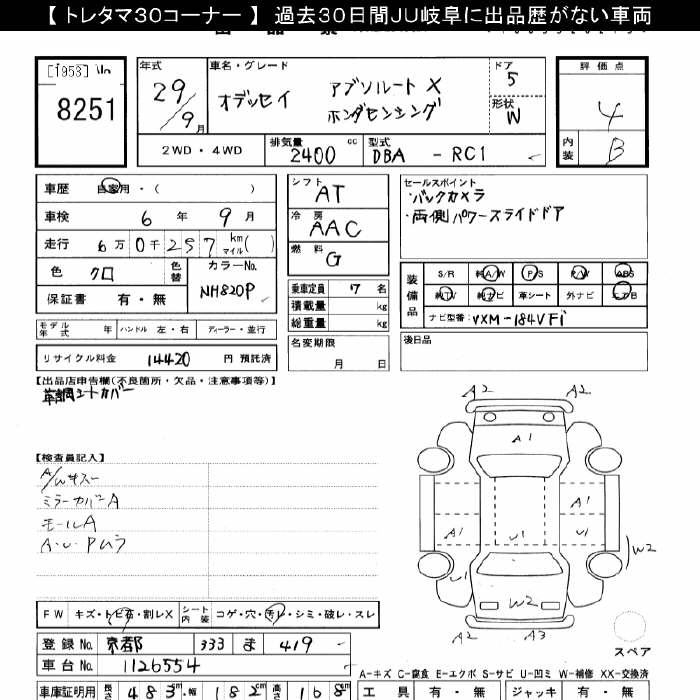 【 トレタマ30コーナー 】 過去30日間JU岐阜に出品歴がない車両
8251
年式 29/9月
車名・グレード オデッセイ アブソルート X ホンダセンシング
ドア 5
形状 W
評価点 4
内装 B
2WD ・ 4WD
排気量 2400 cc
型式 DBA - RC1
車歴 自家用・( )
車検 6 年 9 月
走行 6万 0千 257 km マイル ( )
色 クロ 色替
カラーNo. NH820P
保証書 有・無
シフト AT
冷房 AAC
燃料 G
乗車定員 7 名
積載量 kg
総重量 kg
名変期限 月 日
セールスポイント
・バックカメラ
・両側パワースライドドア
装備品 S/R 純A/W P/S P/W ABS
純TV 純ナビ 革シート 外ナビ エアB
ナビ型番: VXM-184VFi
後日品
モデル年式 年 ハンドル 左・右 ディーラー・並行
リサイクル料金 14420 円 預託済
【出品店申告欄(不良箇所・欠品・注意事項等)】
革調シートカバー
【検査員記入】
A/Wキスー
ミラーカバーA
モールA
A・U・Pムラ
A2 A2
A1
A1 A1
U1 U1
U1 W2
W2
A2 A3
スペア
FW キズ・トビ石・割レX シート内装 コゲ・穴・汚レ・シミ・破レ・スレ
登録No. 京都 333 ま 419
車台No. 1126554
A-キズ C-腐食 E-エクボ S-サビ U-凹ミ W-補修 XX-交換済
車庫証明用 長さ 483cm 幅 182cm 高さ 168cm
工具 有・無 ジャッキ 有・無